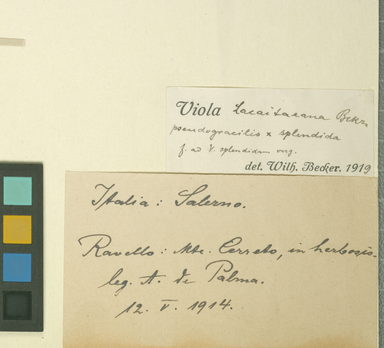 Viola Lacaitaeana Beckr.
pseudogracilis x splendida
f. ad V. splendidam verg.
det. Wilh. Becker. 1919
Italia: Salerno.
Ravello: Mte. Cerreto, in herbosis.
leg. A. de Palma.
12. V. 1914.